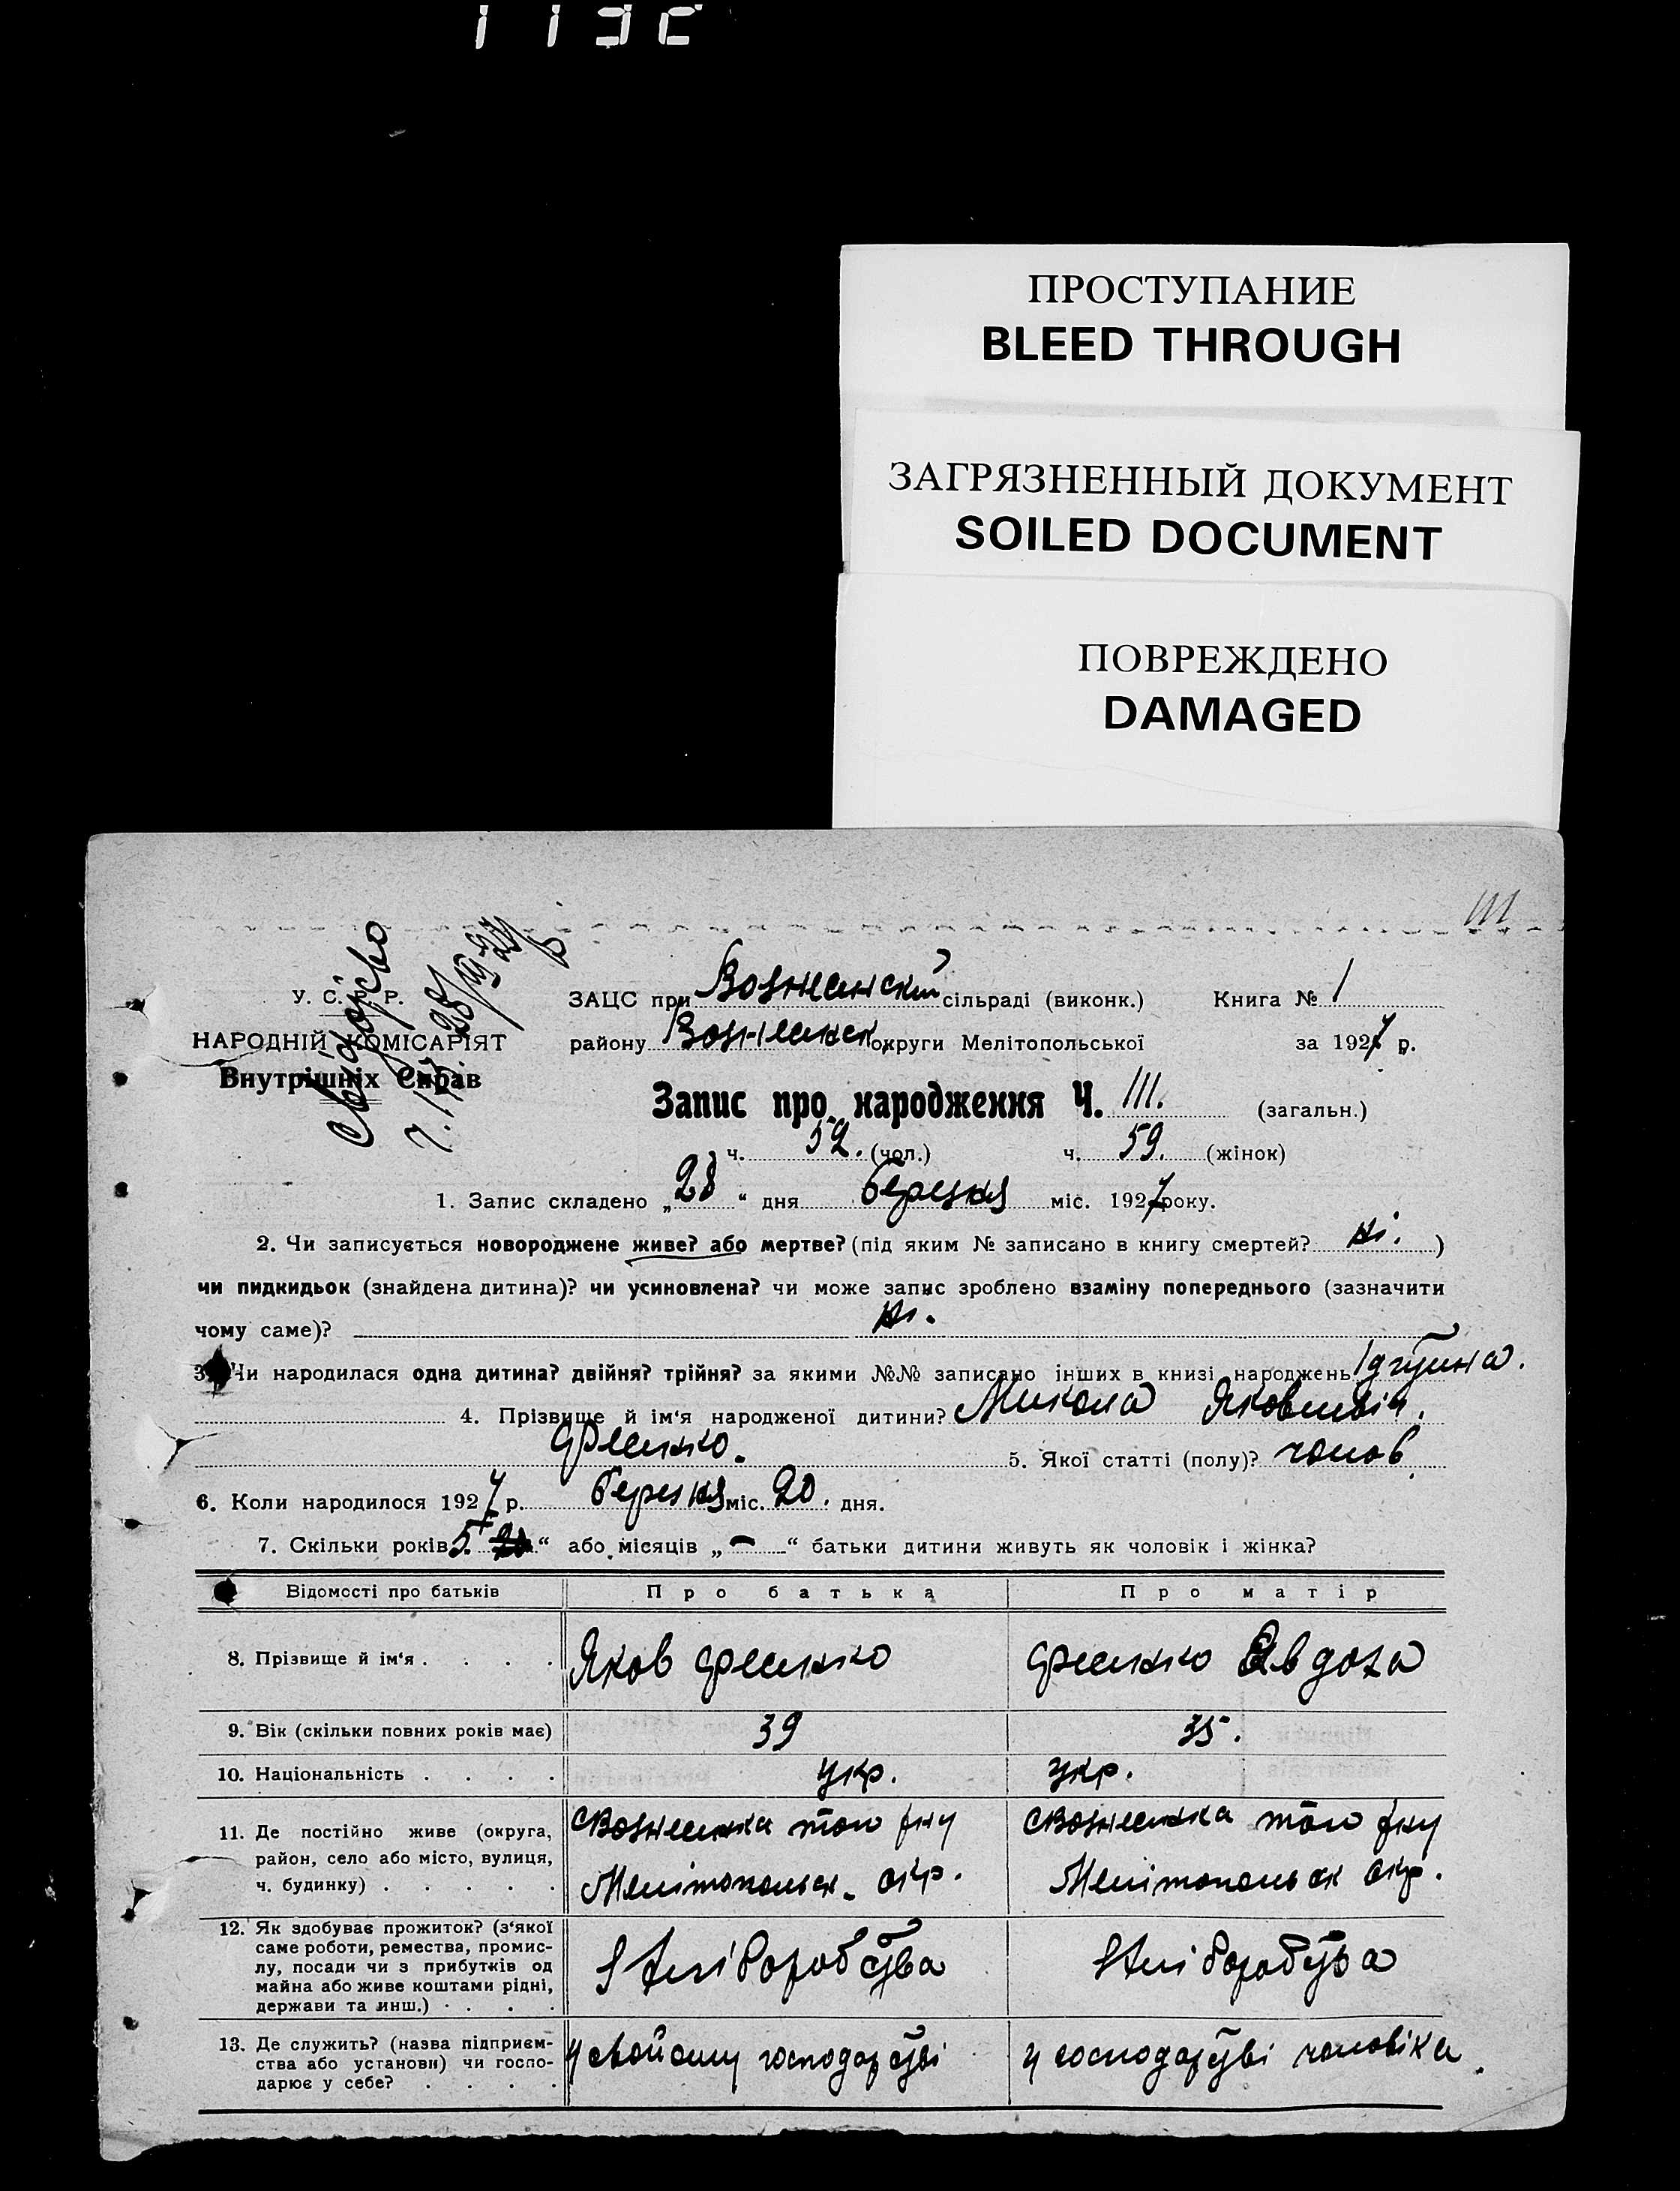 ПРОСТУПАНИЕ
BLEED THROUGH
ЗАГРЯЗНЕННЫЙ ДОКУМЕНТ
SOILED DOCUMENT
ПОВРЕЖДЕНО
DAMAGED
111
У. С. Р. Р.
НАРОДНІЙ КОМІСАРІЯТ
Внутрішніх Справ
ЗАЦС при Вознесенскій сільраді (виконк.) Книга № 1
району округи Мелітопольської за 1927 р.
Запис про народження Ч. 111. (загальн.)
ч. 52. (чол.) ч. 59. (жінок)
1. Запис складено „28“ дня березня міс. 1927 року.
2. Чи записується новороджене живе? або мертве? (під яким № записано в книгу смертей? ні. )
чи пидкидьок (знайдена дитина)? чи усиновлена? чи може запис зроблено взаміну попереднього (зазначити
чому саме)? ні.
3. Чи народилася одна дитина? двійня? трійня? за якими №№ записано інших в книзі народжень
4. Прізвище й ім'я народженої дитини? Микола Яковлевич.
5. Якої статті (полу)? чолов.
6. Коли народилося 1927 р. березня міс. 20. дня.
7. Скільки років 5 “ або місяців „ — “ батьки дитини живуть як чоловік і жінка?
Відомості про батьків Про батька Про матір
8. Прізвище й ім'я . . . . Яков
9. Вік (скільки повних років має) 39 35.
10. Національність . . . . укр. укр.
11. Де постійно живе (округа,
район, село або місто, вулиця,
ч. будинку) . . . . .
с Вознесенка того р-ну с Вознесенка того р-ну
Мелітопольск. окр. Мелітопольск окр.
12. Як здобуває прожиток? (з'якої
саме роботи, ремества, промис-
лу, посади чи з прибутків од
майна або живе коштами рідні,
держави та инш.) . . . .
З хліборобства З хліборобства
13. Де служить? (назва підприєм-
ства або установи) чи госпо-
дарює у себе? . . . .
у свойому господарстві у господарстві чоловіка.